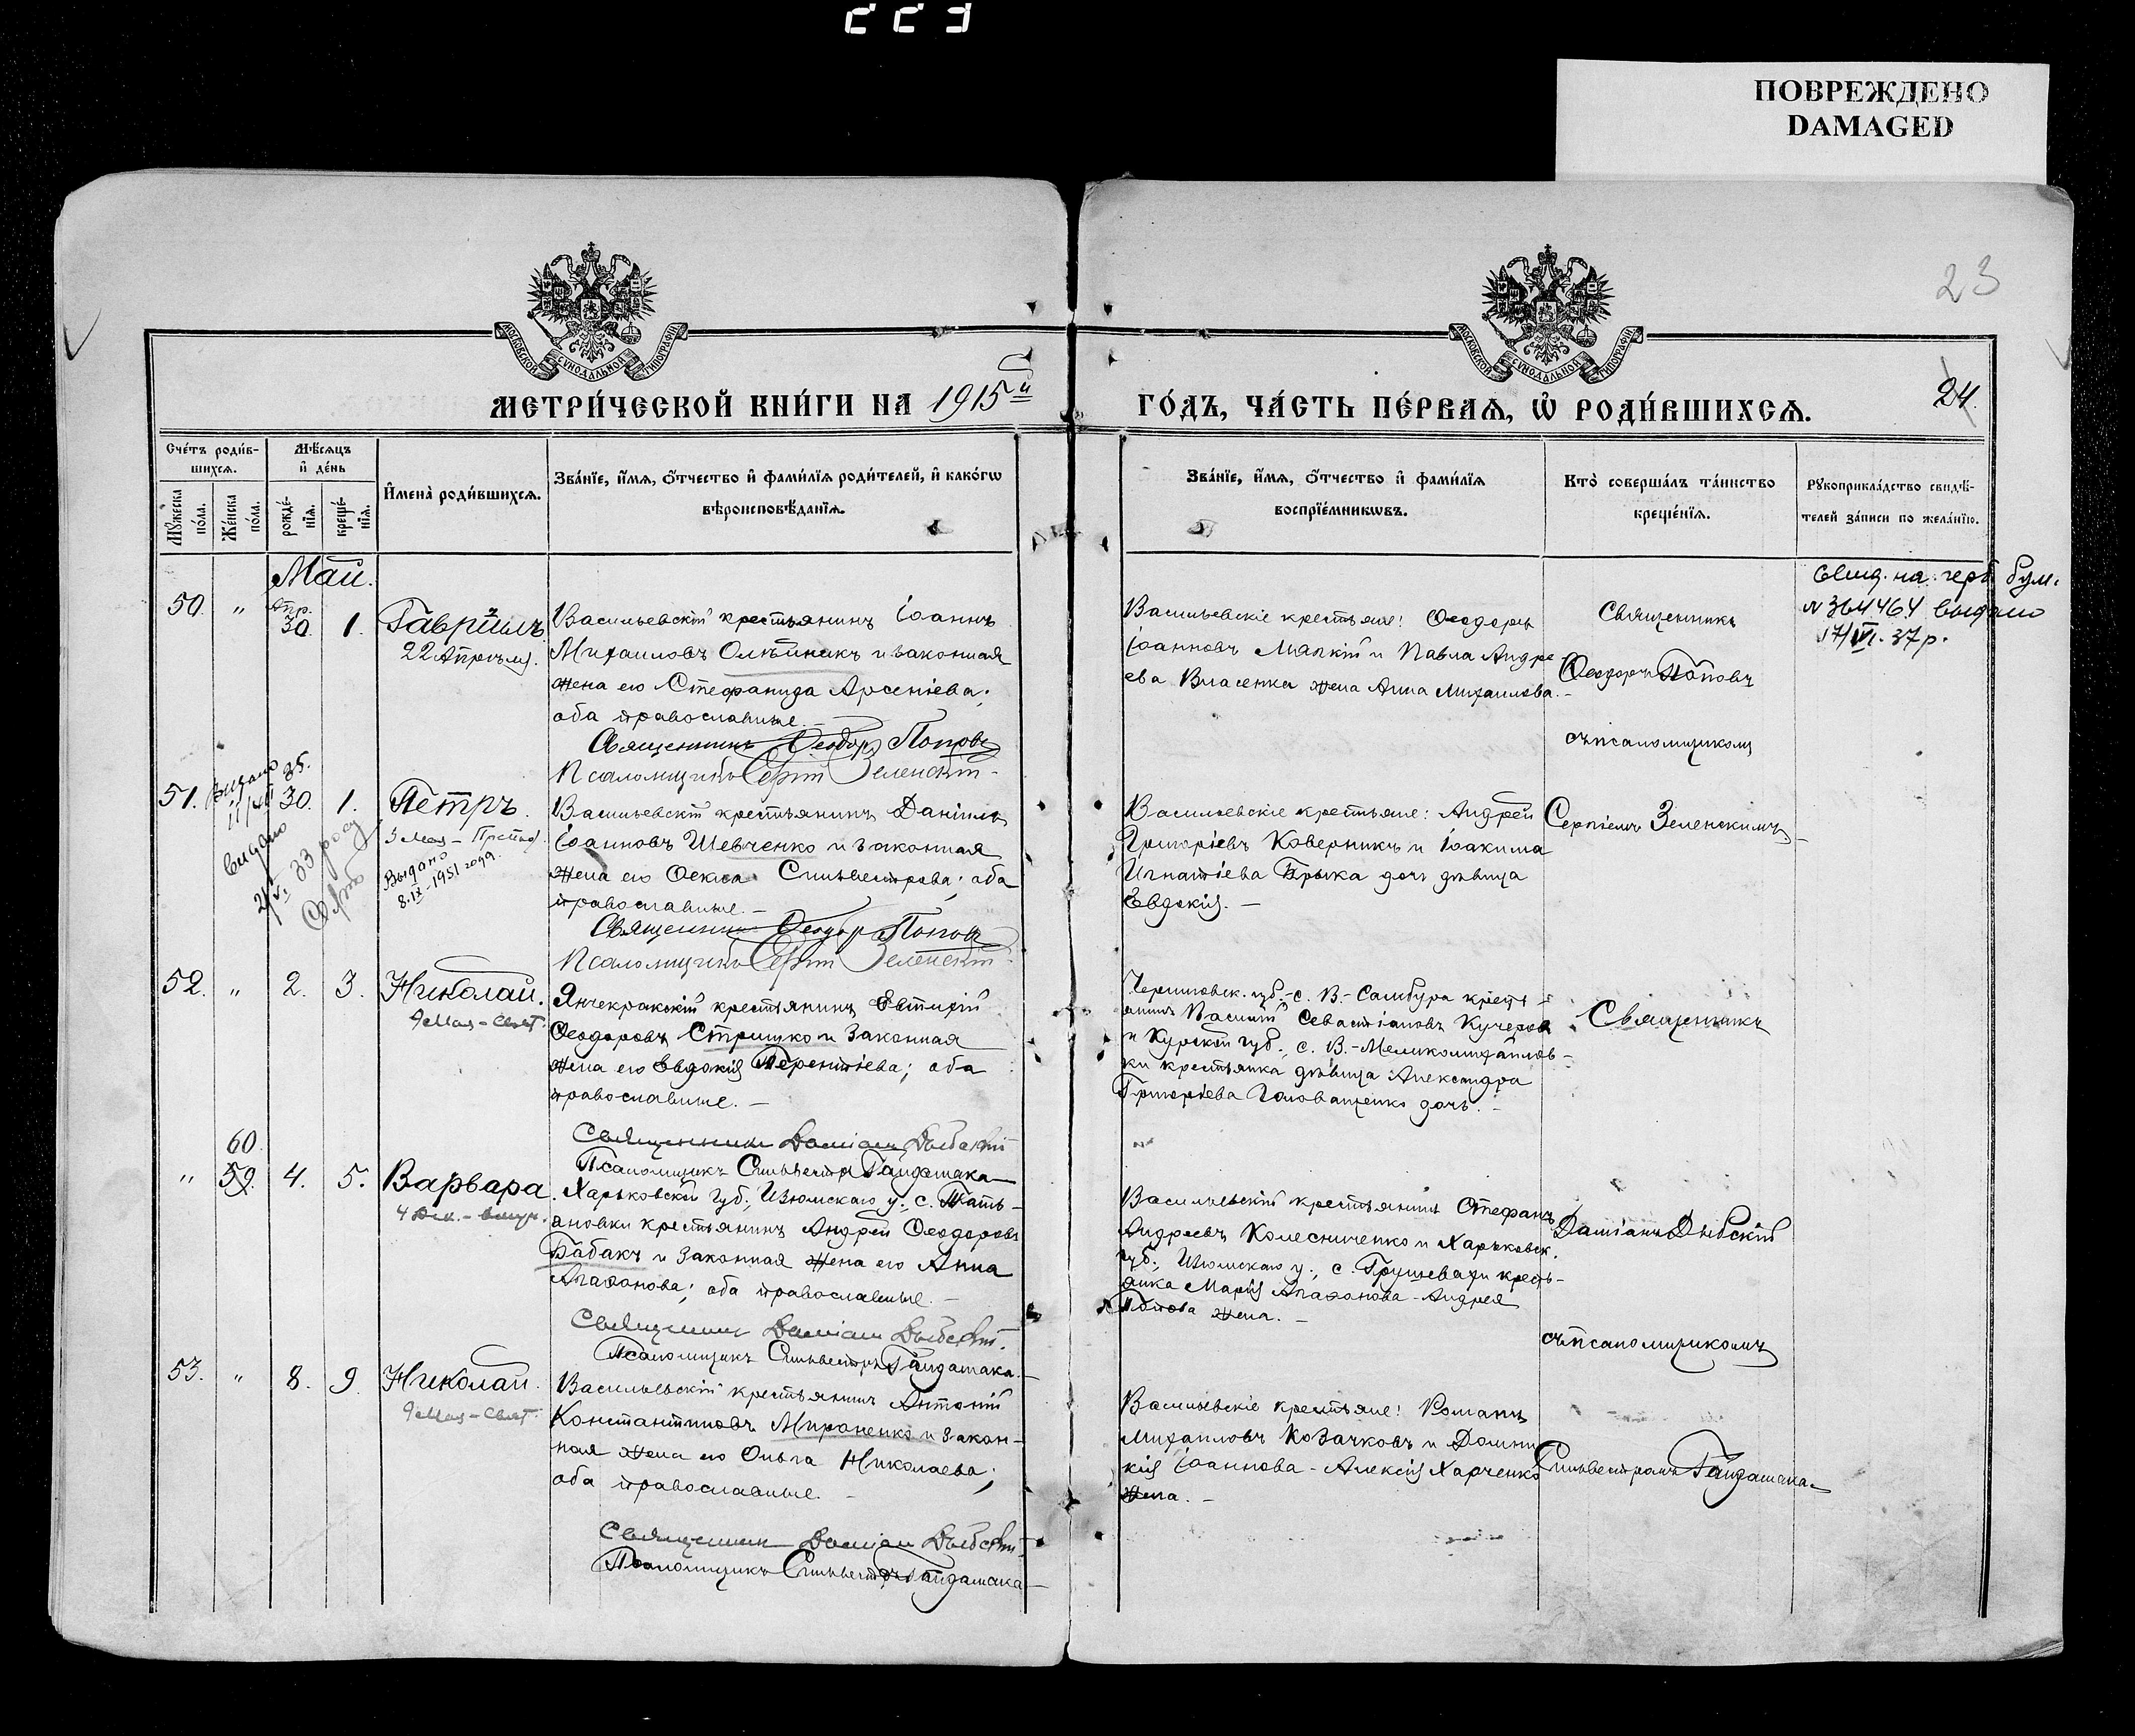 ПОВРЕЖДЕНО
DAMAGED
23
МОСКОВСКОЙ СѴНОДАЛЬНОЙ ТИПОГРАФІИ
МОСКОВСКОЙ СѴНОДАЛЬНОЙ ТИПОГРАФІИ
МЕТРИ́ЧЕСКОЙ КНИ́ГИ НА 1915й
ГО́ДЪ, ЧА́СТЬ ПЕ́РВАѦ, Ѡ҆ РОДИ́ВШИХСѦ.
24.
Сче́тъ роди́в-
шихсѧ.
Мѣ́сѧцъ
и҆ де́нь
Мꙋ́жеска
по́ла.
Же́нска
по́ла.
рожде́-
нїѧ.
креще́-
нїѧ.
И҆мена̀ роди́вшихсѧ.
Зва́нїе, и҆́мѧ, ѻ҆́тчество и҆ фами́лїѧ роди́телей, и҆ како́гѡ
вѣроисповѣ́данїѧ.
Зва́нїе, и҆́мѧ, ѻ҆́тчество и҆ фами́лїѧ
воспрїе́мникѡвъ.
Кто̀ соверша́лъ та́инство
креще́нїѧ.
Рꙋкоприкла́дство свидѣ́-
телей за́писи по жела́нїю.
Май.
50. " Апр. 30. 1. Гавріилъ.
22 Апрѣля.
Васильевскій крестьянинъ Іоаннъ
Михаиловъ Олѣйникъ и законная
жена его Стефанида Арсеніева;
оба православные. —
Священникъ Ѳеодоръ Поповъ
Псаломщикъ Сергій Зеленскій
Васильевскіе крестьяне: Ѳеодоръ
Іоанновъ Мяпкій и Павла Андре-
ева Власенка жена Анна Михаилова. —
Священникъ
Ѳеодоръ Поповъ
съ псаломщикомъ
Свид. на герб бум.
№ 364464 выдано
17/VI. 37р.
51. Видано 35. 30. 1. Петръ.
Видано 2/VI 33 року
3 Мая – Препод.
Выдано
8.IX–1951 года.
Васильевскій крестьянинъ Даніилъ
Іоанновъ Шевченко и законная
жена его Ѳекла Сильвестрова; оба
православные. —
Священникъ Ѳеодоръ Поповъ
Псаломщикъ Сергій Зеленскій
Васильевскіе крестьяне: Андрей
Григоріевъ Коверникъ и Іоакима
Игнатіева Брыка дочь дѣвица
Евдокія. —
Сергіемъ Зеленскимъ. —
52. " 2. 3. Николай.
9 Мая – Свят.
Янчекракскій крестьянинъ Евтихій
Ѳеодоровъ Стришко и законная
жена его Евдокія Терентіева; оба
православные. —
Священникъ Даміанъ Дыбскій
Псаломщикъ Сильвестръ Гайдамака
Черниговск. губ. – с. В.-Самбура кресть-
янинъ Василій Севастіановъ Кучеров
и Курской губ., с. В.-Меликомихайлов-
ки крестьянка дѣвица Александра
Григоріева Головащенко дочь. –
Священникъ
60.
" 59. 4. 5. Варвара.
4 Дек. – Велик.
Харьковской губ., Изюмскаго у., с. Тать-
яновки крестьянинъ Андрей Ѳеодоровъ
Бабакъ и законная жена его Анна
Агаѳонова; оба православные. —
Священникъ Даміанъ Дыбскій.
Псаломщикъ Сильвестръ Гайдамака. —
Васильевскій крестьянинъ Стефанъ
Андреевъ Колесниченко и Харьковск.
губ., Изюмскаго у., с. Грушевахи кресть-
янка Марія Агаѳонова – Андрея
Попова жена. —
Даміанъ Дыбскій
съ псаломщикомъ
53. " 8. 9. Николай.
9 Мая – Свят.
Васильевскій крестьянинъ Антоній
Константиновъ Мироненко и закон-
ная жена его Ольга Николаева;
оба православные. —
Священникъ Даміанъ Дыбскій.
Псаломщикъ Сильвестръ Гайдамака —
Васильевскіе крестьяне: Романъ
Михаиловъ Козачковъ и Домни-
кія Іоаннова – Алексія Харченко
жена. —
Сильвестромъ Гайдамака